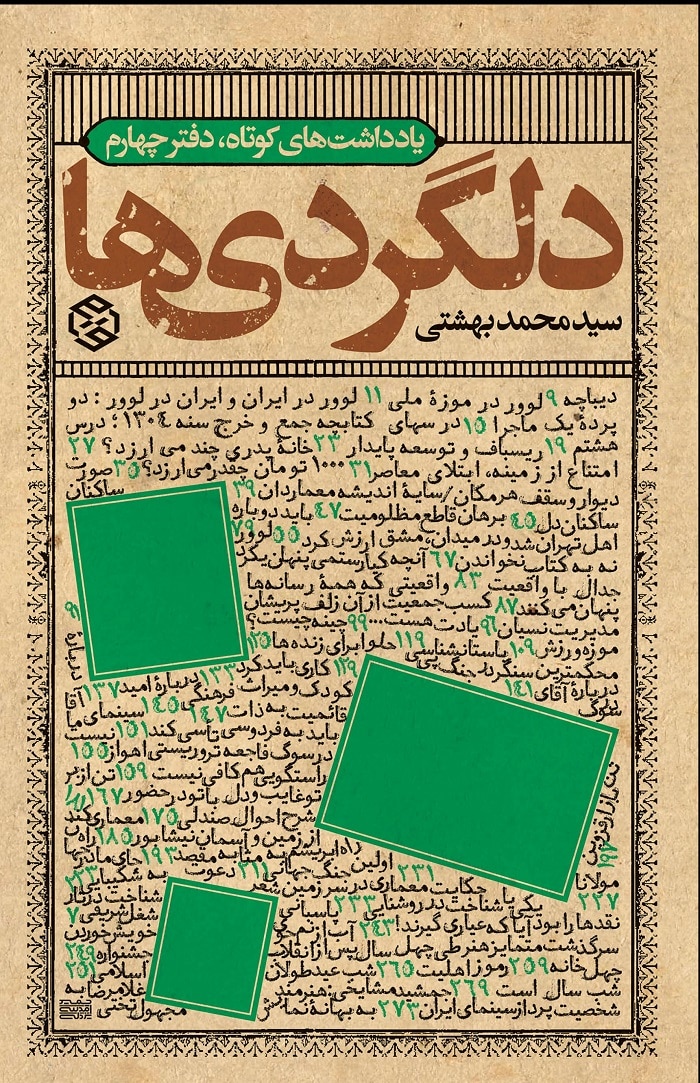 یادداشت‌های کوتاه، دفتر چهارم
دلگردی‌ها
سید محمد بهشتی
دیباچه ۹ لوور در موزهٔ ملی ۱۱ لوور در ایران و ایران در لوور : دو
پردهٔ یک ماجرا ۱۵ درسهای کتابچه جمع و خرج سنه ۱۳۰۴ ؛ درس
هشتم ۱۹ ریسباف و توسعه پایدار ۲۳ خانهٔ پدری چند می ارزد؟ ۲۷
امتناع از زمینه، ابتلای معاصر ۳۱ ۱۰۰۰ تومان چقدر می‌ارزد؟ ۳۵ صورت
دیوار و سقف هرمکان / سایهٔ اندیشه معماردان ۳۹ ساکنان
ساکنان دل ۴۵ برهان قاطع مظلومیت ۴۷ باید دوباره
اهل تهران شد و در میدان، مشق ارزش کرد ۵۵ لوور ۷۹
نه به کتاب نخواندن ۶۷ آنچه کیارستمی پنهان نکرد
جدال با واقعیت ۸۳ واقعیتی که همهٔ رسانه‌ها
پنهان می‌کنند ۸۷ کسب جمعیت از آن زلف پریشان ۹۱
مدیریت نسیان ۹۶ یادت هست... ۹۹ جینه چیست؟
موزه و رزش ۱۰۹ باستانشناسی ۱۱۹ حلوا برای زنده ها ۱۲۵ دربارهٔ
محکمترین سنگر در جنگ ۱۲۹ کاری باید کرد ۱۳۳ دربارهٔ امید ۱۳۷ آقا
دربارهٔ آقای ۱۴۱ کودک و میراث فرهنگی ۱۴۵ سینمای ما
در سوگ قائمیت به ذات ۱۴۷
باید به فردوسی تأسی کند ۱۵۱ نیست
در سوگ فاجعه تروریستی اهواز ۱۵۵
راستگویی هم کافی نیست ۱۵۹ تن
تو غایب و دل با تو در حضور ۱۶۷
شرح احوال صندلی ۱۷۵ معماری
از زمین و آسمان نیشابور ۱۸۵ راه
راه ابریشم به مثابه مقصد ۱۹۳ جای مادری
مولانا ۲۳۱ اولین جنگ جهانی ۲۱۱ دعوت به شکیبایی ۲۲۳
۲۲۷ حکایت معماری در سرزمین شعر
یکی یا شناخت در روشنایی ۲۳۳ پاسبانی شناخت در
نقدها را بود آیا که عیاری گیرند! ۲۴۳ شغل شریفی
سرگذشت متمایز هنر طی چهل سال پس از انقلاب خویش خوردن
چهل خانه ۲۵۹ رموز اهلیت ۲۶۵ شب عید طولانی جشنواره ۲۴۹
شب سال است ۲۶۹ جمشید مشایخی: هنرمند اسلامی ۲۵۱
شخصیت پرداز سینمای ایران ۲۷۳ به بهانهٔ غلامرضا به
مجهول تختی